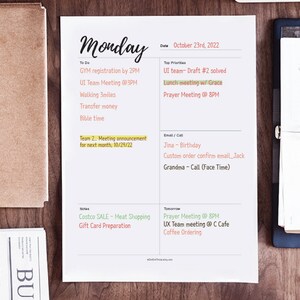 Monday
Date October 23rd, 2022
To Do
GYM registration by 2PM
UI Team Meeting @ 8PM
Walking Smiles
Transfer money
Bible time
Team 2. Meeting announcement
for next month. 10/29/22
Top Priorities
UI beaer Draft #2 solved
Lunch meeting w/ Grace
Prayer Meeting @ 8PM
Email / Call
Jina - Birthday
Custom order confirm email_Jack
Grandma - Call (Face Time)
Notes
Costco SALE - Meat Shopping
Gift Card Preparation
Tomorrow
Prayer Meeting @ 8PM
UX Team meeting @ C Cafe
Coffee Ordering
BU